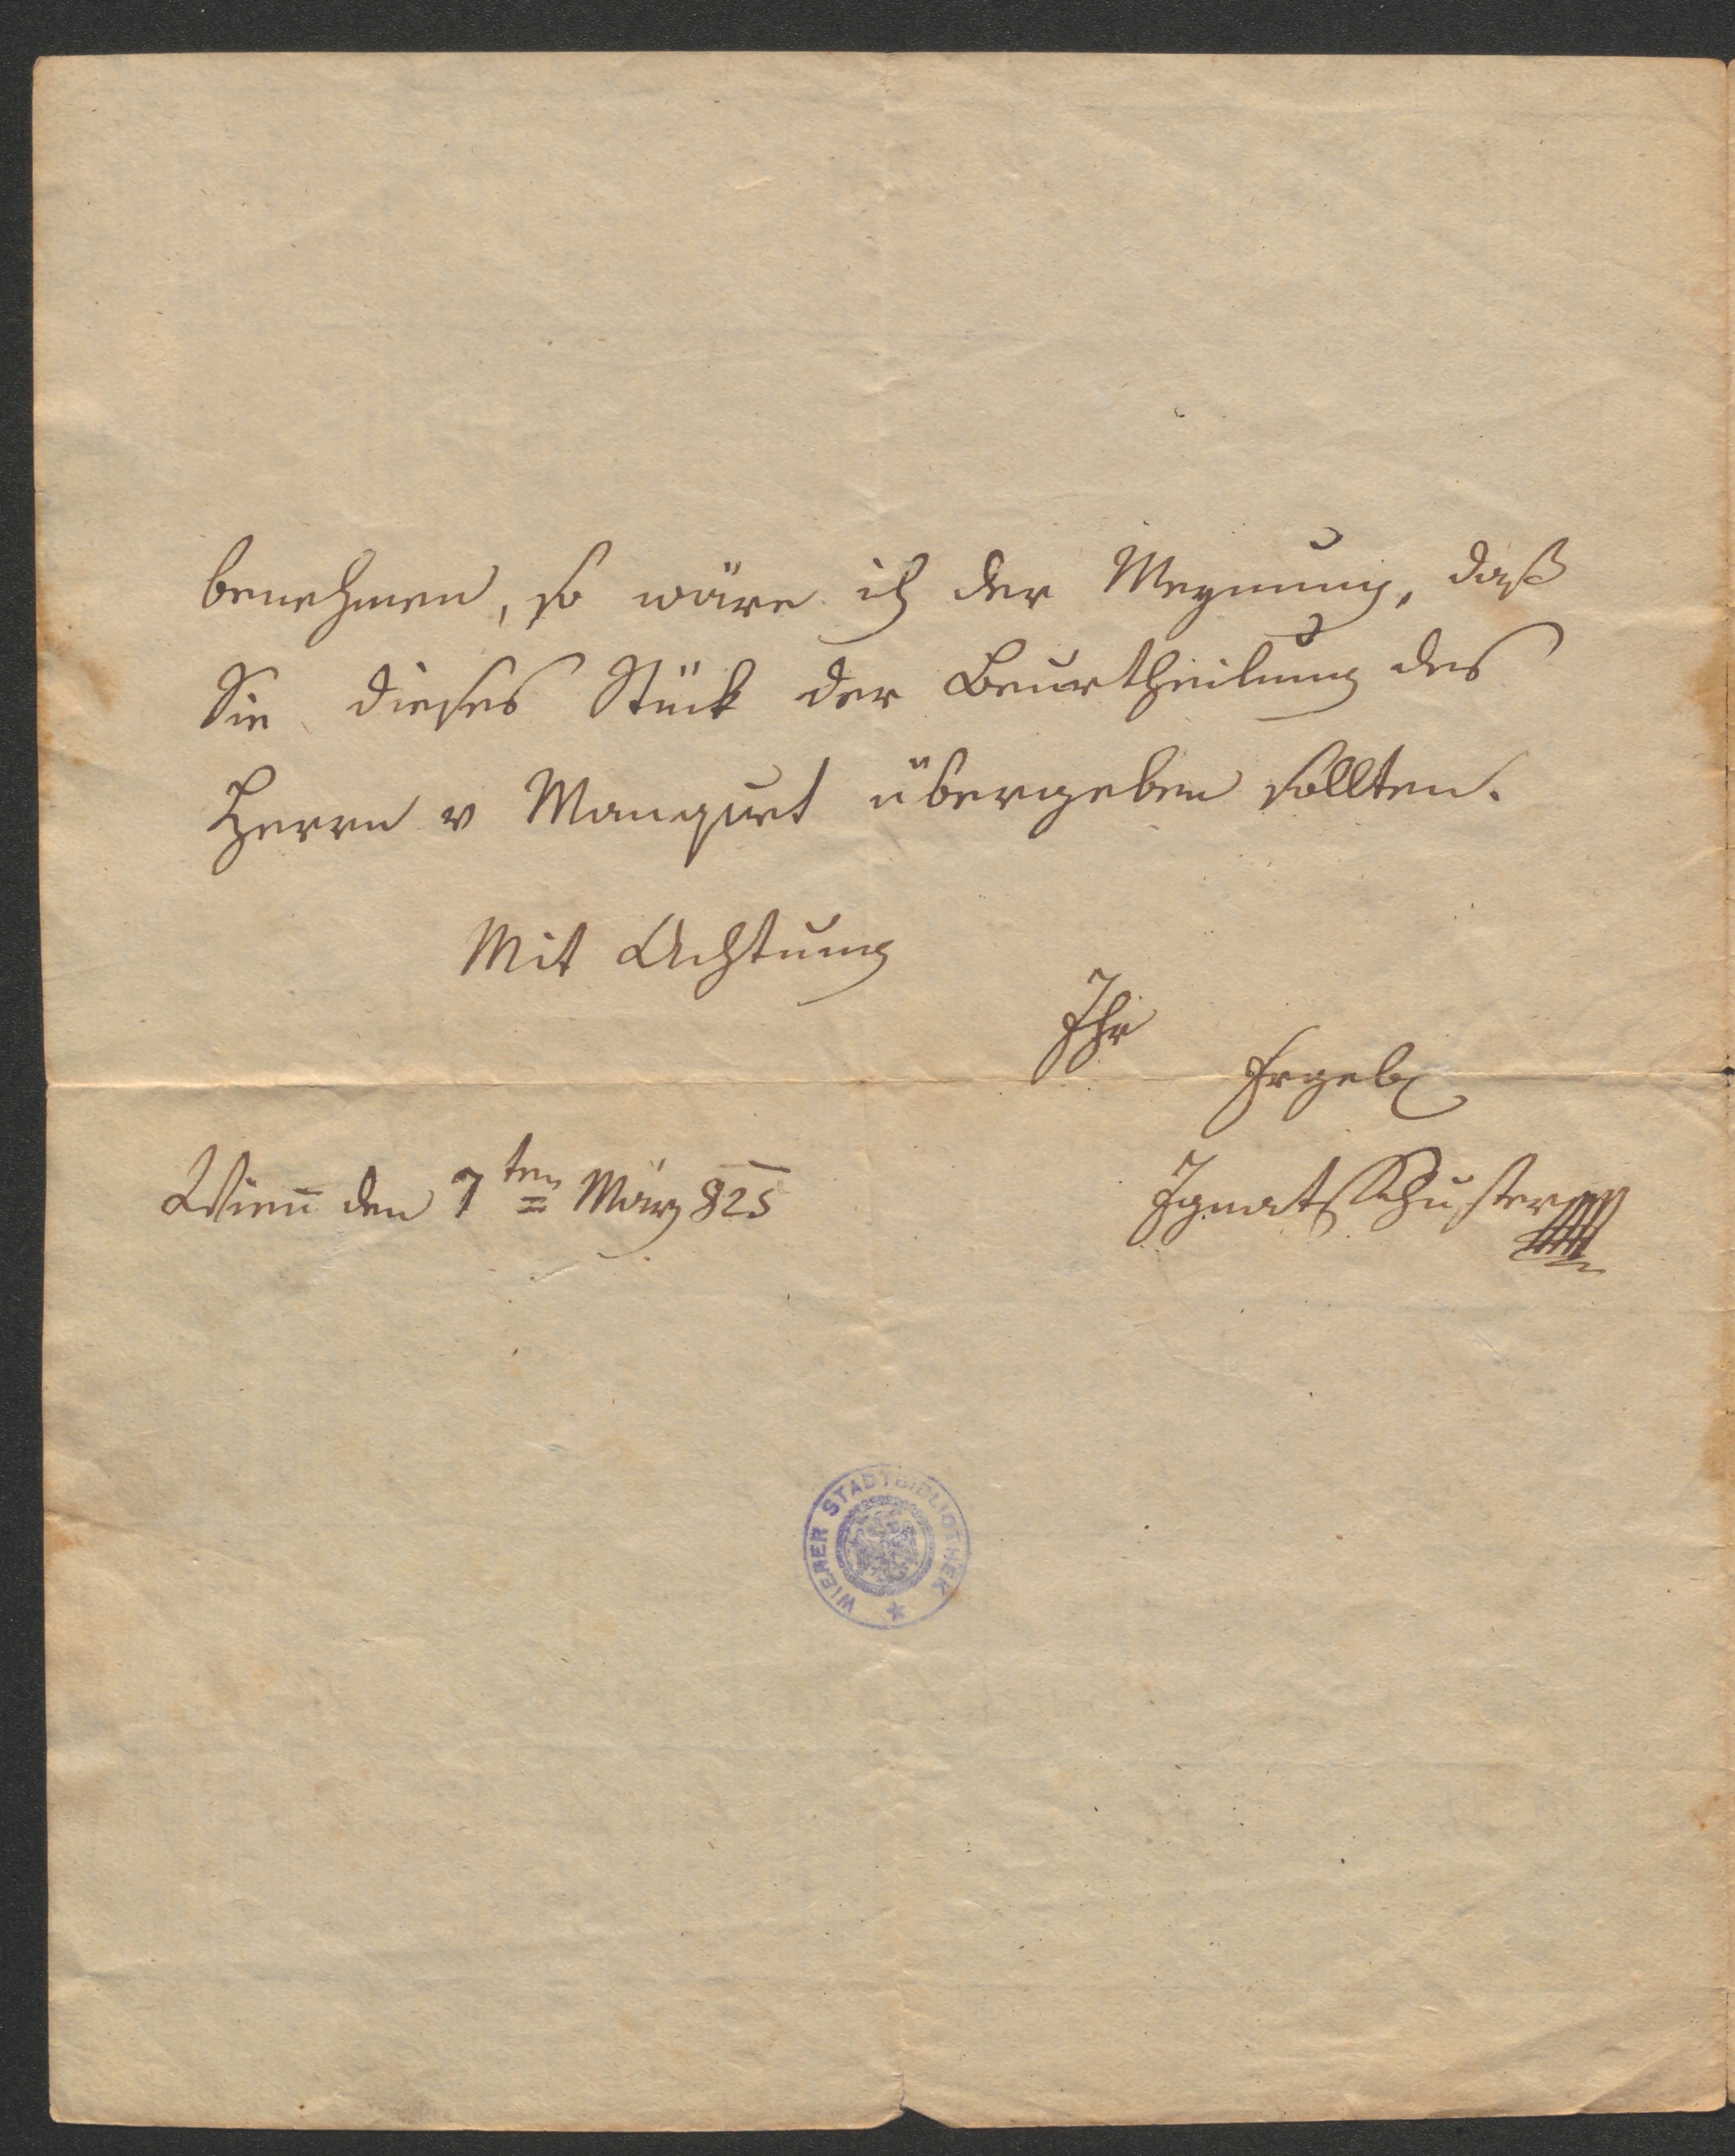 benehmen, so wäre ich der Meynung, daß
Sie dieses Stück der Beurtheilung des
Herrn v Manquet übergeben sollten.
Mit Achtung
Ihr
Ergeb
Wien̅ den 7ten März 825
Ignatz Schuster
WIENER STADTBIBLIOTHEK